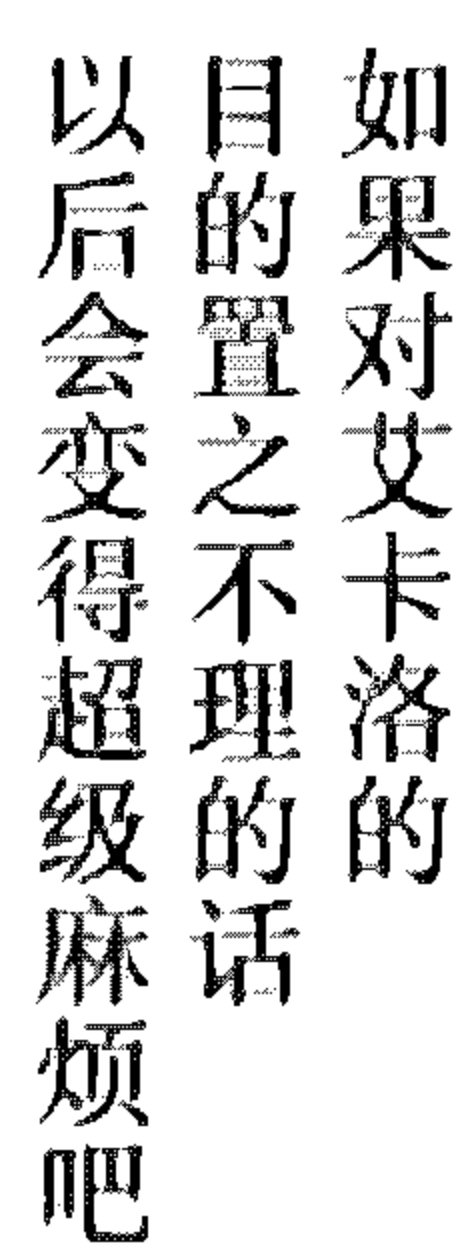 如果对艾卡洛的
目的置之不理的话
以后会变得超级麻烦吧